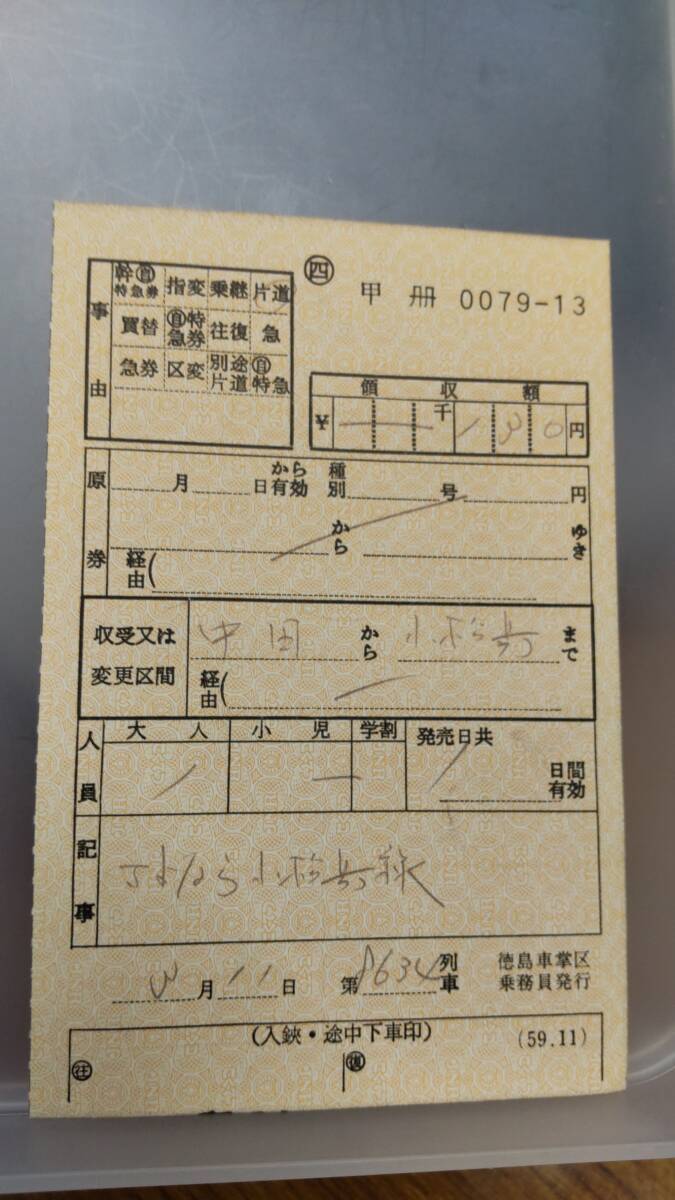 ㊃ 甲 冊 0079-13
事由
幹㊂特急券 指変 乗継 片道
買替 ㊂特急券 往復 急
急券 区変 別途片道 ㊂特急
領 収 額
¥ 千 130 円
原券
月 日から有効 種別 号 円
から ゆき
経由(
収受又は変更区間
中田 から 小松島 まで
経由(
人員
大人 小児 学割 発売日共
1 1 日間有効
記事
さよなら小松島線
3月11日 第8634列車 徳島車掌区
乗務員発行
(入鋏・途中下車印) (59.11)
往 復